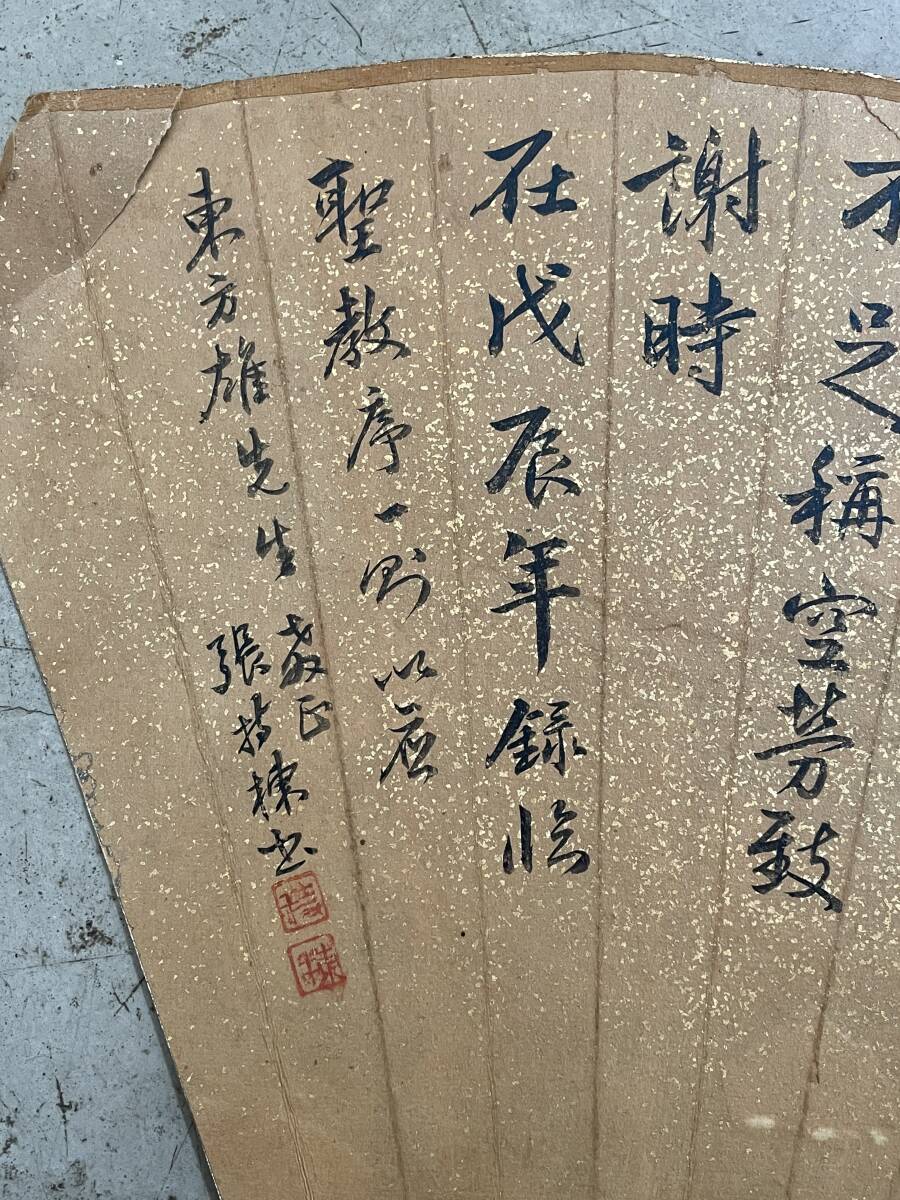 不足稱空勞致
謝時
在戊辰年錄臨
聖教序一則以應
東方雄先生教正
張書